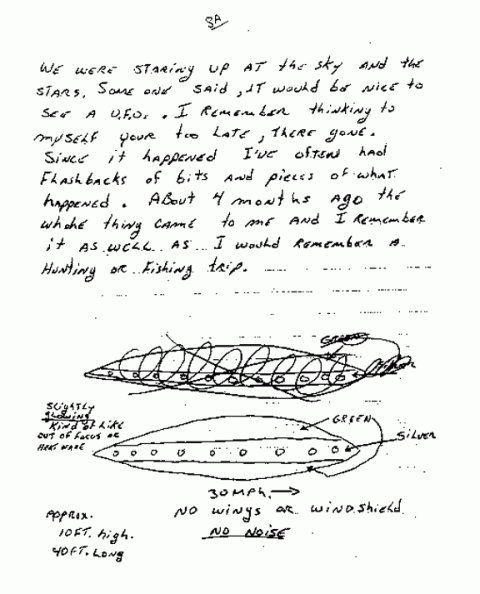 3A
WE WERE STARING UP AT the SKY AND the
STARS. SOME ONE SAID, IT WOULD BE NICE TO
SEE A U.F.O.. I REMEMBER thinking to
mYSELF YOUR too LATE, THERE GONE.
SINCE it happened I'VE OFTEN HAD
FLASHBACKS OF bits AND PIECES OF WHAT
happened. ABOUT 4 MONTHS AGO the
WHOLE THING CAME TO ME AND I REMEMBER
it AS WELL AS I WOULD REMEMBER A
HUNTING OR FISHING TRIP.
GREEN
SLIGHTLY
GLOWING
KIND OF LIKE
OUT OF FOCUS OR
HEAT WAVE
GREEN
SILVER
30 MPH. →
NO WINGS OR WINDSHIELD
NO NOISE
APPROX.
10 FT. high.
40 FT. LONG